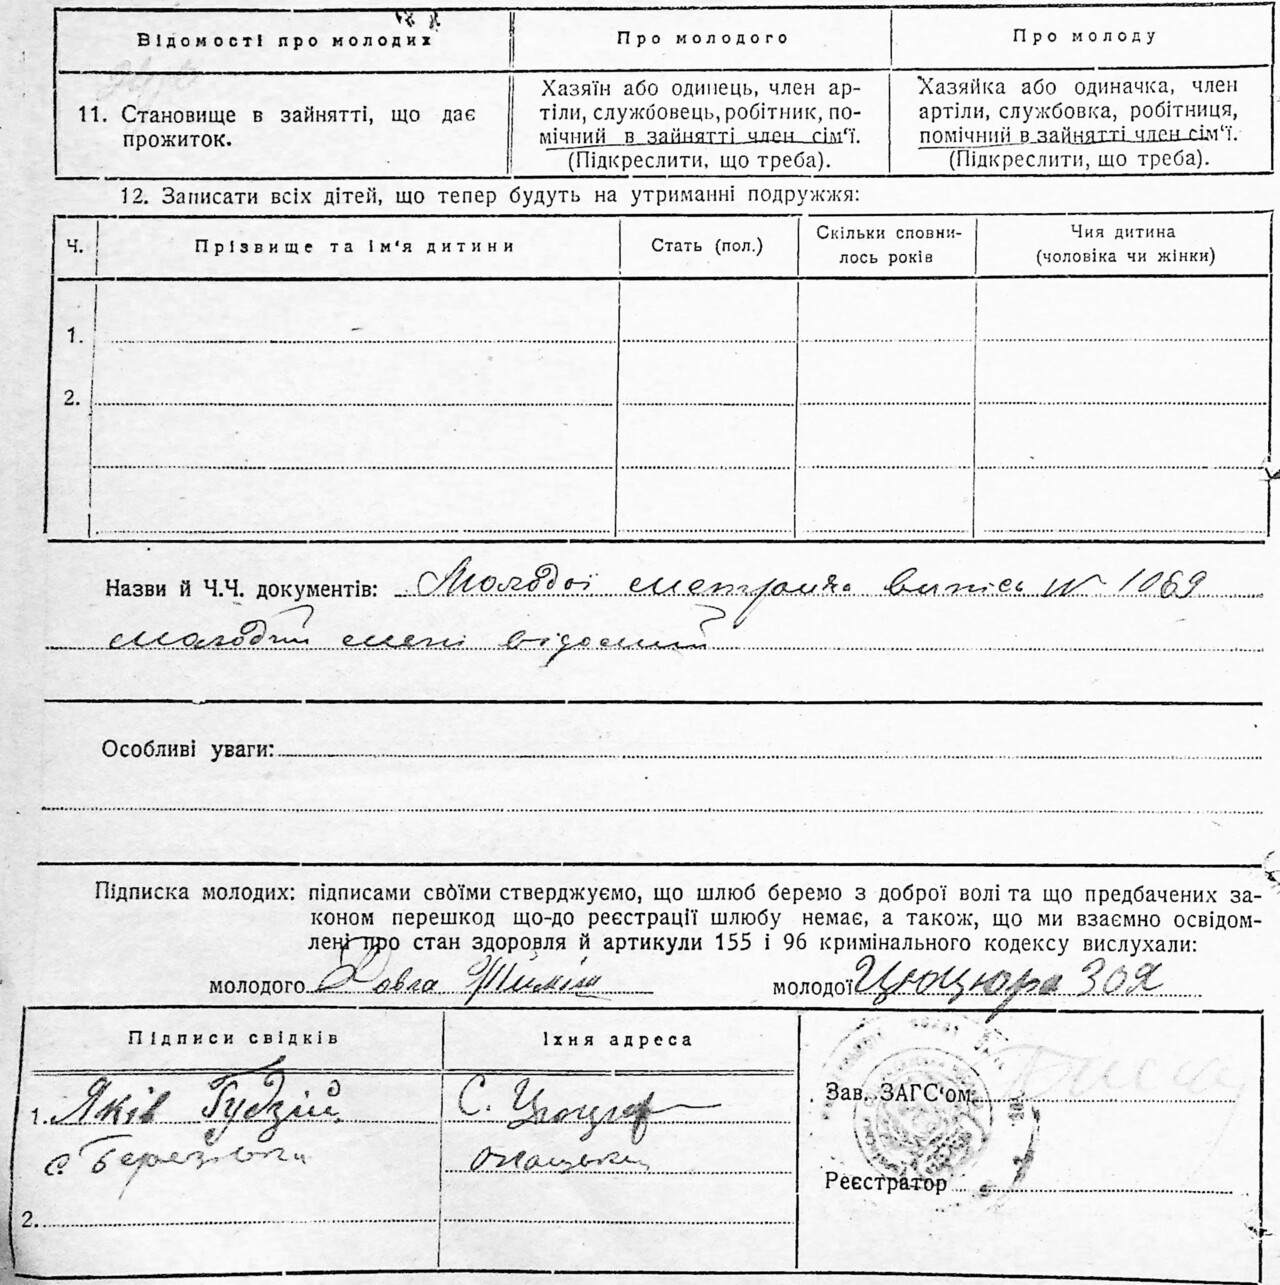 Відомості про молодих
Про молодого
Про молоду
11. Становище в зайнятті, що дає
прожиток.
Хазяїн або одинець, член ар-
тіли, службовець, робітник, по-
мічний в зайнятті член сім'ї.
(Підкреслити, що треба).
Хазяйка або одиначка, член
артіли, службовка, робітниця,
помічний в зайнятті член сім'ї.
(Підкреслити, що треба).
12. Записати всіх дітей, що тепер будуть на утриманні подружжя:
Ч.
Прізвище та ім'я дитини
Стать (пол.)
Скільки сповни-
лось років
Чия дитина
(чоловіка чи жінки)
1.
2.
Назви й Ч.Ч. документів: Молодої метрична випись № 1069
молодий мені відомий
Особливі уваги:
Підписка молодих: підписами своїми стверджуємо, що шлюб беремо з доброї волі та що предбачених за-
коном перешкод що-до реєстрації шлюбу немає, а також, що ми взаємно освідом-
лені про стан здоровля й артикули 155 і 96 кримінального кодексу вислухали:
молодого Довга Тиміш молодої Цюцюра Зоя
Підписи свідків
Їхня адреса
1. Яків Гудзій
С.
с. Березівка
2.
Зав. ЗАГС'ом
Реєстратор